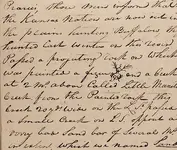 Prarie, those men inform that
the Kansas Nation are now out in
the plains hunting Buffalow they
hunted last winter on this river
Passed a projecting rock on which
was painted a figure and a Creek
at 2 Ms above Called Little Manitou
Creek from the Painted rock this
Creek 20 yds wide on the L. S. passed
a Small Creek on L. S. opposit a
verry bad Sand bar of Several Ms
in extent which we named Sand